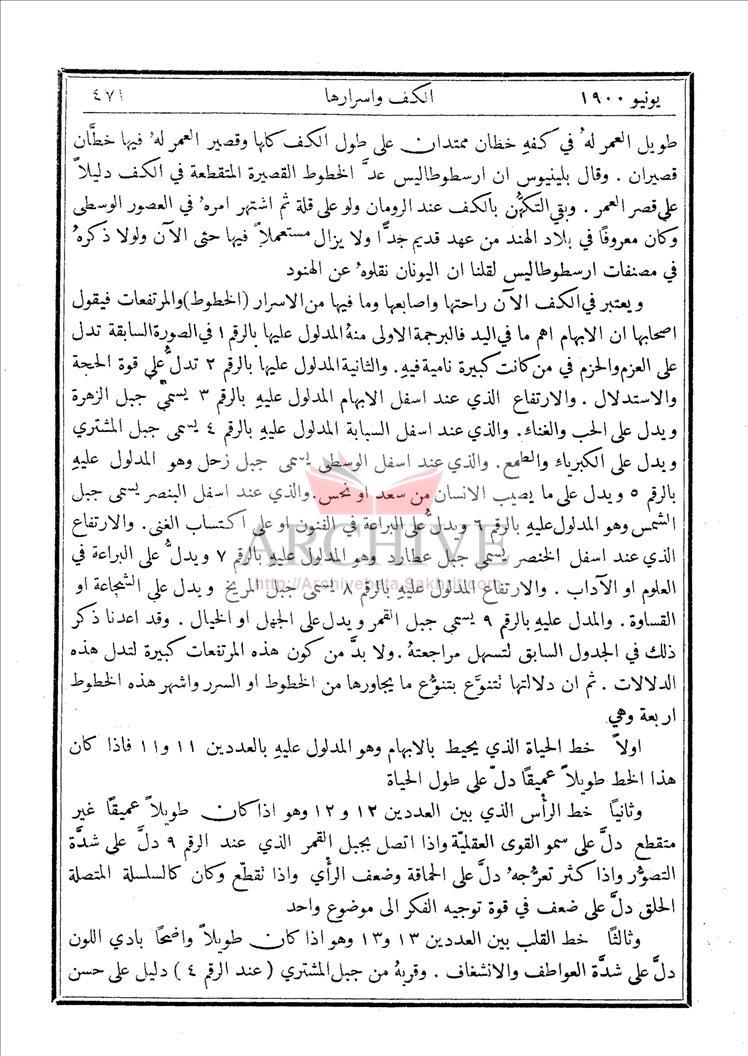 يونيو ١٩٠٠ الكف واسرارها ٤٧١
طويل العمر لهُ في كفهِ خطان ممتدان على طول الكف كلها وقصير العمر لهُ فيها خطَّان
قصيران . وقال بلينيوس ان ارسطوطاليس عدَّ الخطوط القصيرة المتقطعة في الكف دليلاً
على قصر العمر . وبقي التكهُّن بالكف عند الرومان ولو على قلة ثم اشتهر امرهُ في العصور الوسطى
وكان معروفًا في بلاد الهند من عهد قديم جدًّا ولا يزال مستعملاً فيها حتى الآن ولولا ذكرهُ
في مصنفات ارسطوطاليس لقلنا ان اليونان نقلوهُ عن الهنود
ويعتبر في الكف الآن راحتها واصابعها وما فيها من الاسرار (الخطوط) والمرتفعات فيقول
اصحابها ان الابهام اهم ما في اليد فالبرجمة الاولى منهُ المدلول عليها بالرقم ١ في الصورة السابقة تدل
على العزم والحزم في من كانت كبيرة نامية فيهِ. والثانية المدلول عليها بالرقم ٢ تدلُّ على قوة الحجة
والاستدلال . والارتفاع الذي عند اسفل الابهام المدلول عليهِ بالرقم ٣ يسمى جبل الزهرة
ويدل على الحب والغناء. والذي عند اسفل السبابة المدلول عليهِ بالرقم ٤ يسمى جبل المشتري
ويدل على الكبرياء والطمع. والذي عند اسفل الوسطى يسمى جبل زحل وهو المدلول عليهِ
بالرقم ٥ ويدل على ما يصيب الانسان من سعد او نحس. والذي عند اسفل البنصر يسمى جبل
الشمس وهو المدلول عليهِ بالرقم ٦ ويدلُّ على البراعة في الفنون او على اكتساب الغنى. والارتفاع
الذي عند اسفل الخنصر يسمى جبل عطارد وهو المدلول عليهِ بالرقم ٧ ويدلُّ على البراعة في
العلوم او الآداب . والارتفاع المدلول عليهِ بالرقم ٨ يسمى جبل المريخ ويدل على الشجاعة او
القساوة. والمدل عليهِ بالرقم ٩ يسمى جبل القمر ويدل على الجهل او الخيال . وقد اعدنا ذكر
ذلك في الجدول السابق لتسهل مراجعتهُ . ولا بدَّ من كون هذه المرتفعات كبيرة لتدل هذه
الدلالات . ثم ان دلالتها تتنوَّع بتنوُّع ما يجاورها من الخطوط او السرر واشهر هذه الخطوط
اربعة وهي
اولاً خط الحياة الذي يحيط بالابهام وهو المدلول عليهِ بالعددين ١١ و١١ فاذا كان
هذا الخط طويلاً عميقًا دلّ على طول الحياة
وثانيًا خط الرأس الذي بين العددين ١٢ و١٢ وهو اذا كان طويلاً عميقًا غير
متقطع دلَّ على سمو القوى العقليَّة واذا اتصل بجبل القمر الذي عند الرقم ٩ دلَّ على شدَّة
التصوُّر واذا كثر تعرُّجهُ دلَّ على الحماقة وضعف الرأي واذا تقطَّع وكان كالسلسلة المتصلة
الحلق دلَّ على ضعف في قوة توجيه الفكر الى موضوع واحد
وثالثًا خط القلب بين العددين ١٣ و١٣ وهو اذا كان طويلاً واضحًا بادي اللون
دلَّ على شدَّة العواطف والانشغاف . وقربهُ من جبل المشتري ( عند الرقم ٤ ) دليل على حسن
ARCHIVE
http://Archivebeta.Sakhrit.com